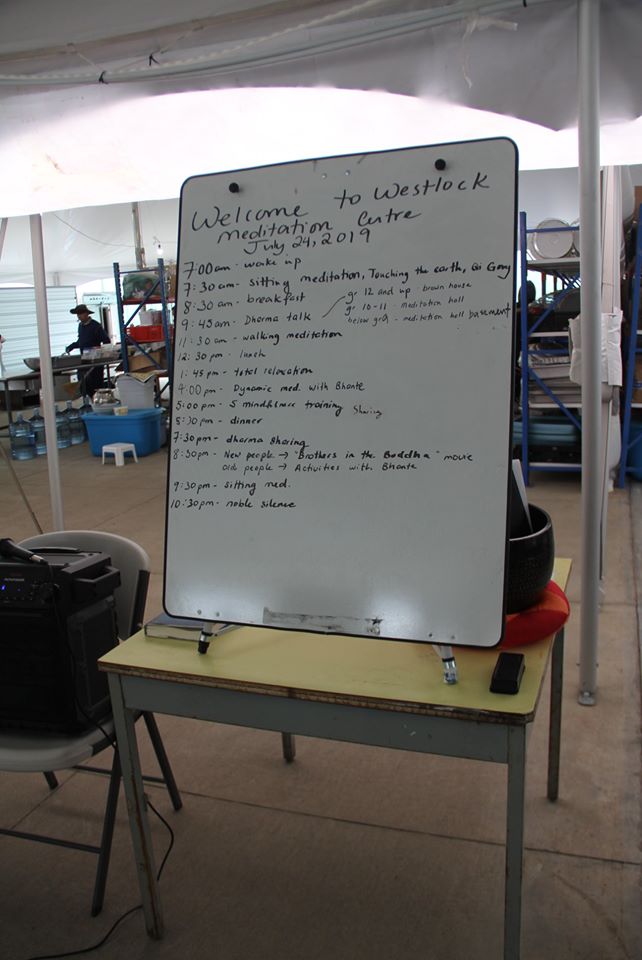 Welcome to Westlock
meditation Centre
July 24, 2019
7:00am - wake up
7:30 am - sitting meditation, Touching the earth, Qi Gong
8:30 am - breakfast
9:45am - Dharma talk
gr 12 and up brown house
gr 10-11 - meditation hall
below gr9 - meditation hall basement
11:30 am - walking meditation
12:30 pm - lunch
1:45 pm - total relaxation
4:00 pm - Dynamic med. with Bhante
5:00 pm - 5 mindfulness training Sharing
5:30 pm - dinner
7:30pm - dharma sharing
8:30pm - New people → "Brothers in the Buddha" movie
Old people → Activities with Bhante
9:30pm - sitting med.
10:30pm - noble silence